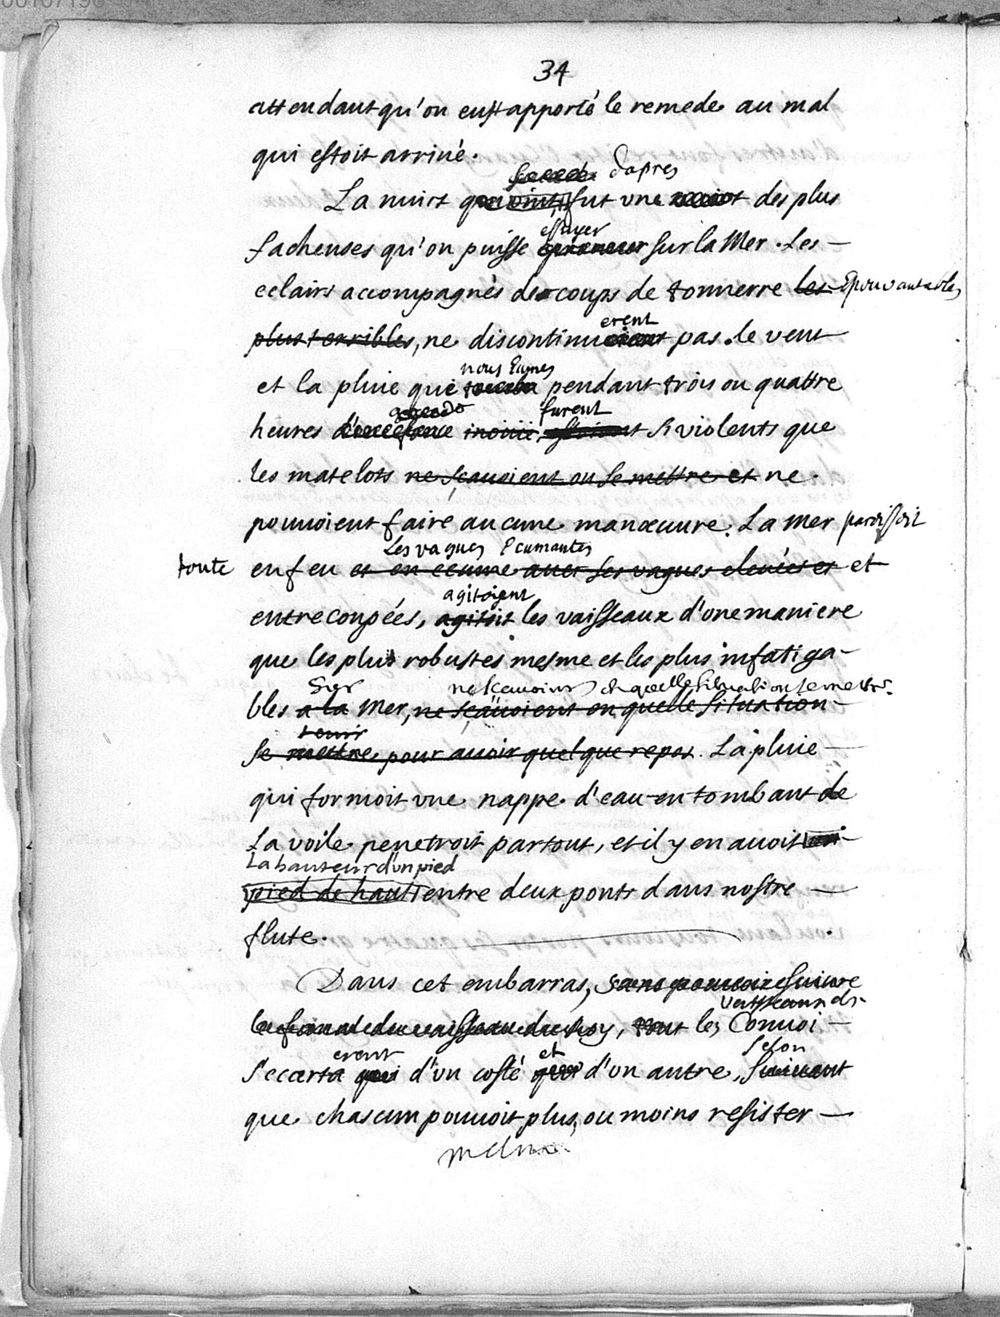 34
attendant qu'on eust apporté le remede au mal
qui estoit arriué.
d'apres
La nuict qui vint, fut vne des plus
essuyer
facheuses qu'on puisse sur la Mer. Les
eclairs accompagnés de coups de tonnerre les Epouvantables
plus terribles, ne discontinu pas. le vent
erent
nous Eumes
et la pluie que pendant trois ou quattre
furent
heures inouiie, si violents que
les matelots ne sçauoient ou se mettre et ne
pouuoient faire aucune manœuure. La Mer paroissoit
Les vagues Ecumantes
toute en feu et en ecume auec ses vagues eleuées et et
agitoient
entrecoupées, agitoit les vaisseaux d'une maniere
que les plus robustes mesme et les plus infatiga-
Sur ne scauoient en quelle situation se mettre
bles a la Mer, ne sçauoient en quelle situation
tenir
se mettre, pour auoir quelque repos. La pluie
qui formoit vne nappe d'eau en tombant de
La voile, penetroit partout, et il y en auoit un
La hauteur d'un pied
pied de haut entre deux ponts dans nostre
flute.
Dans cet embarras, sans pouuoir suiure
vaisseaux du
le fanal du vaisseau du Roy, tout les Conuoi
erent et selon
s'ecarta qui d'un costé qui d'un autre, suiuant
que chascun pouuoit plus, ou moins resister